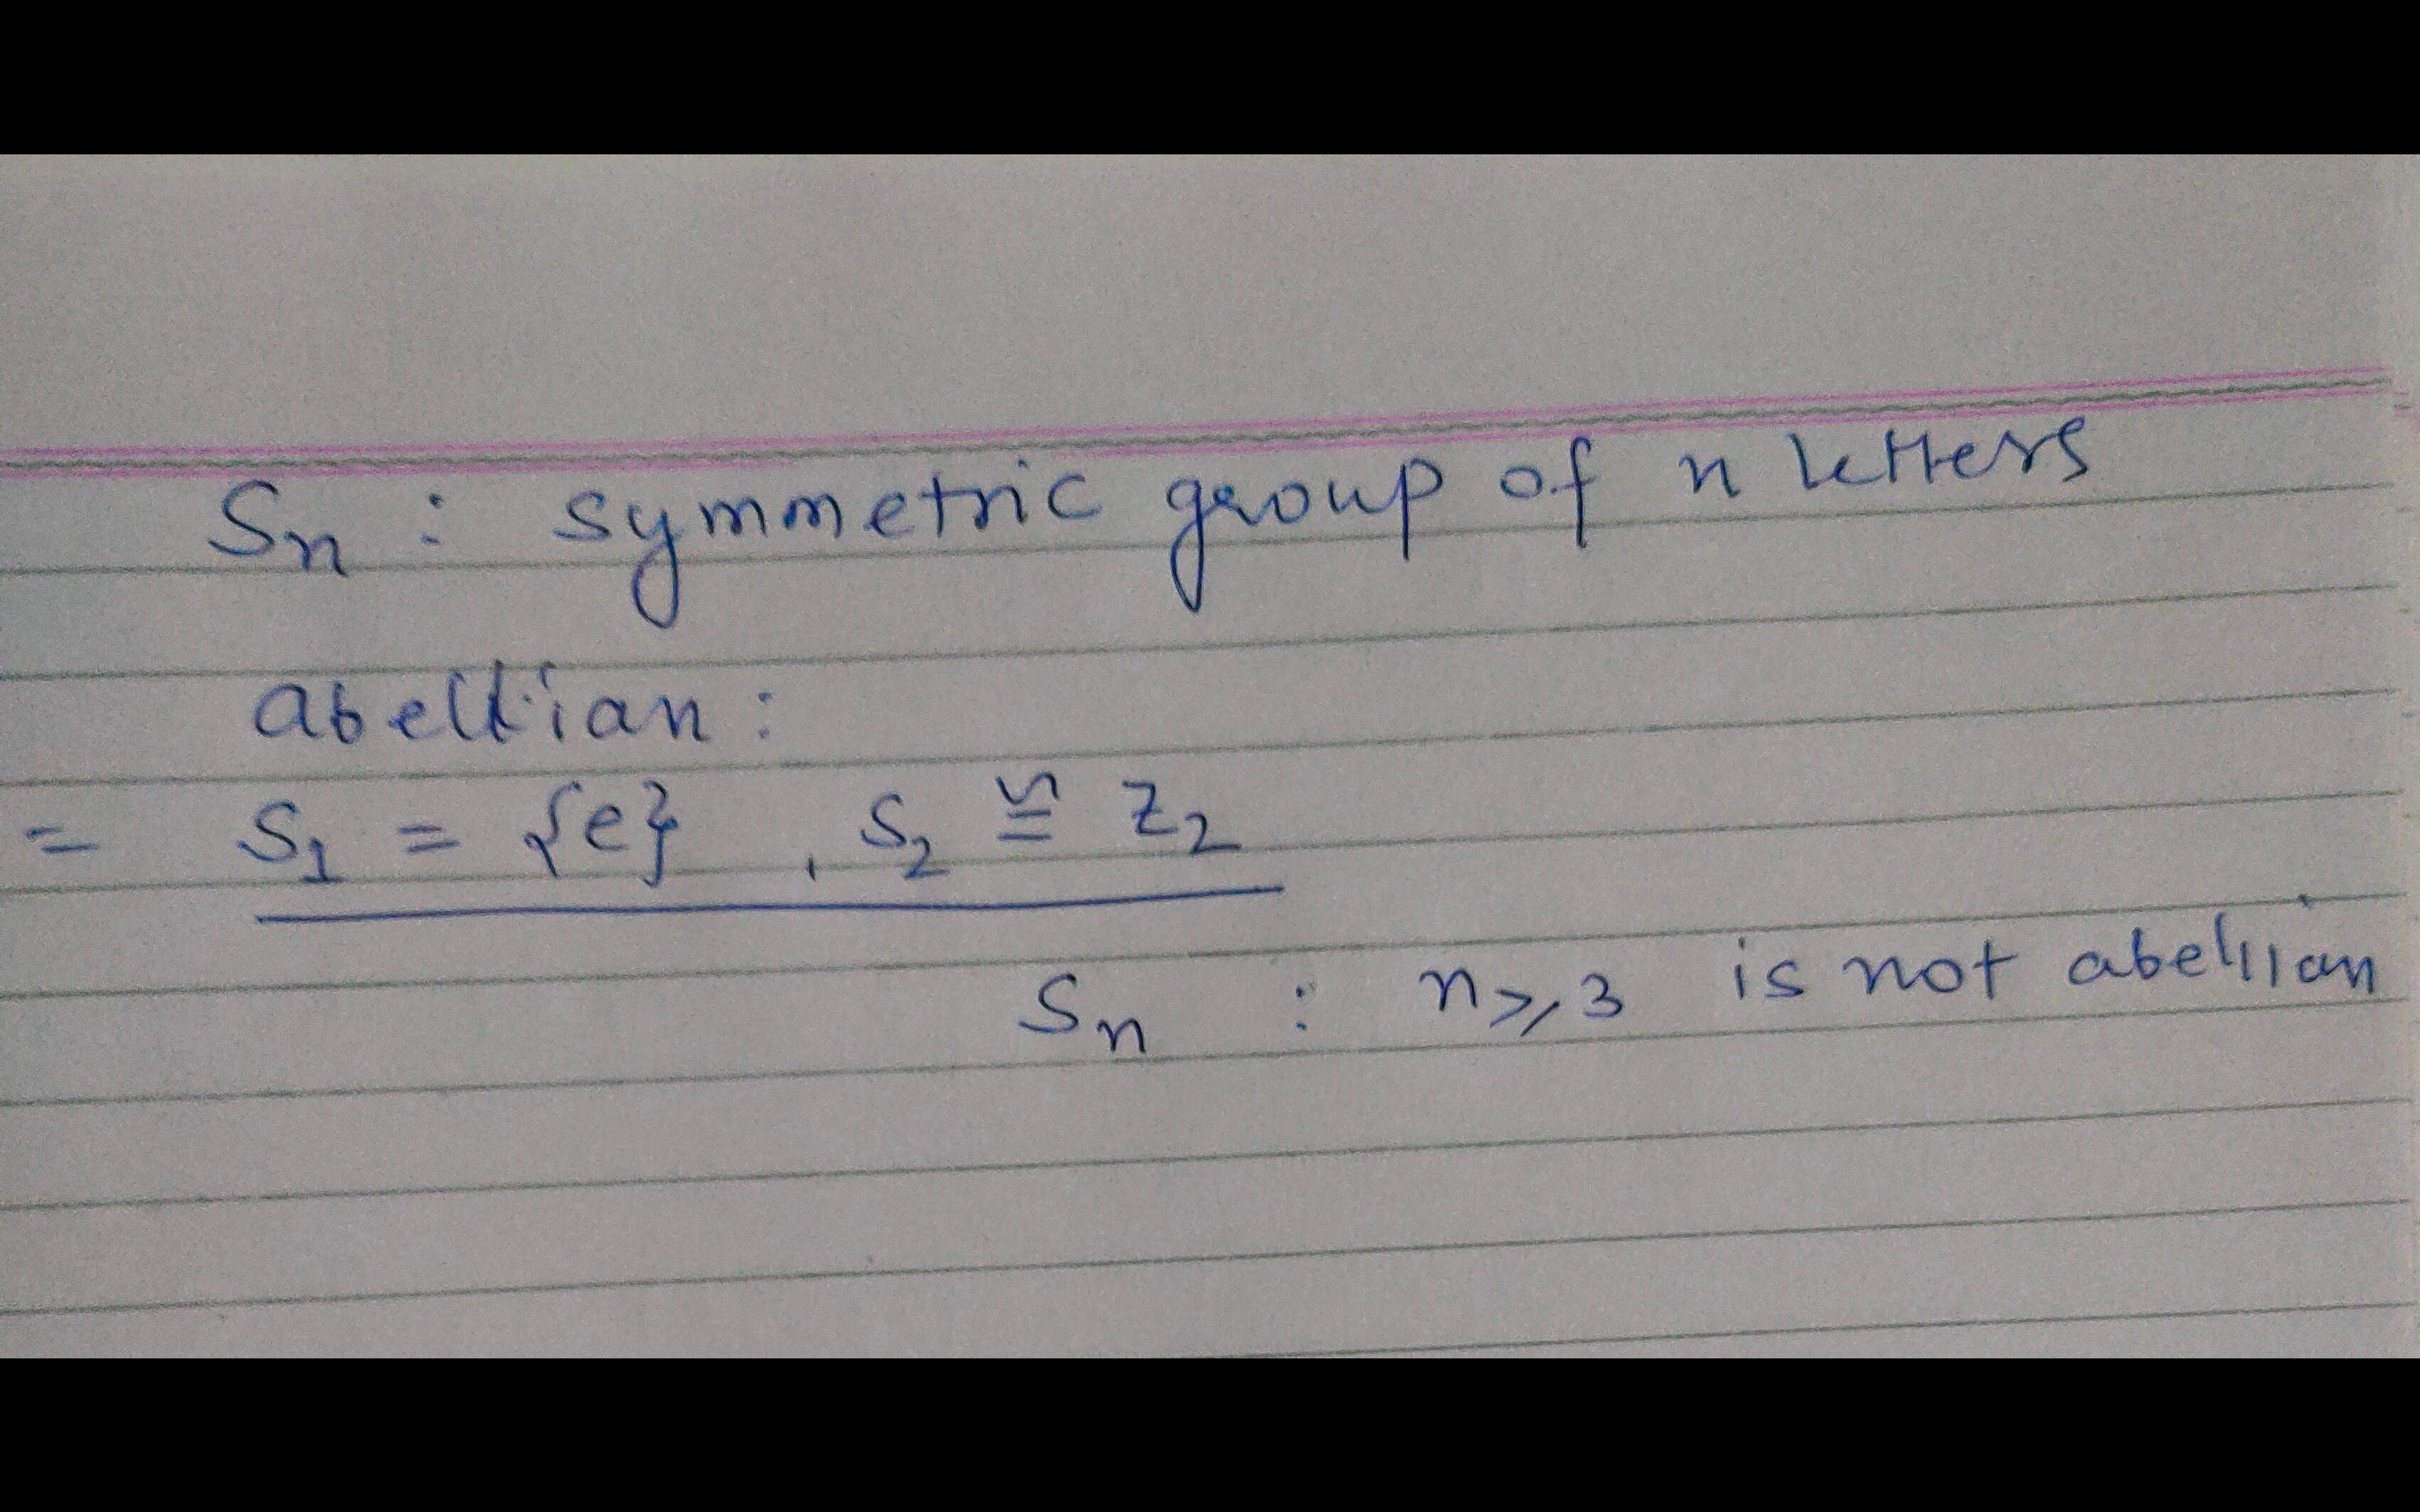 Sn : symmetric group of n letters
abellian :
= S1 = {e} , S2 ≅ Z2
Sn : n ≥ 3 is not abellian